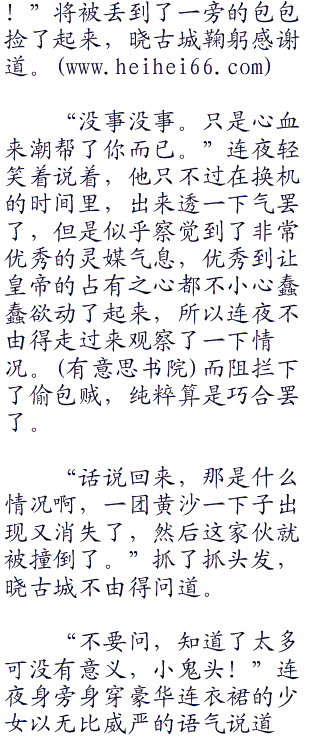 ！”将被丢到了一旁的包包
捡了起来，晓古城鞠躬感谢
道。(www.heihei66.com)
“没事没事。只是心血
来潮帮了你而已。”连夜轻
笑着说着，他只不过在换机
的时间里，出来透一下气罢
了，但是似乎察觉到了非常
优秀的灵媒气息，优秀到让
皇帝的占有之心都不小心蠢
蠢欲动了起来，所以连夜不
由得走过来观察了一下情
况。(有意思书院)而阻拦下
了偷包贼，纯粹算是巧合罢
了。
“话说回来，那是什么
情况啊，一团黄沙一下子出
现又消失了，然后这家伙就
被撞倒了。”抓了抓头发，
晓古城不由得问道。
“不要问，知道了太多
可没有意义，小鬼头！”连
夜身旁身穿豪华连衣裙的少
女以无比威严的语气说道